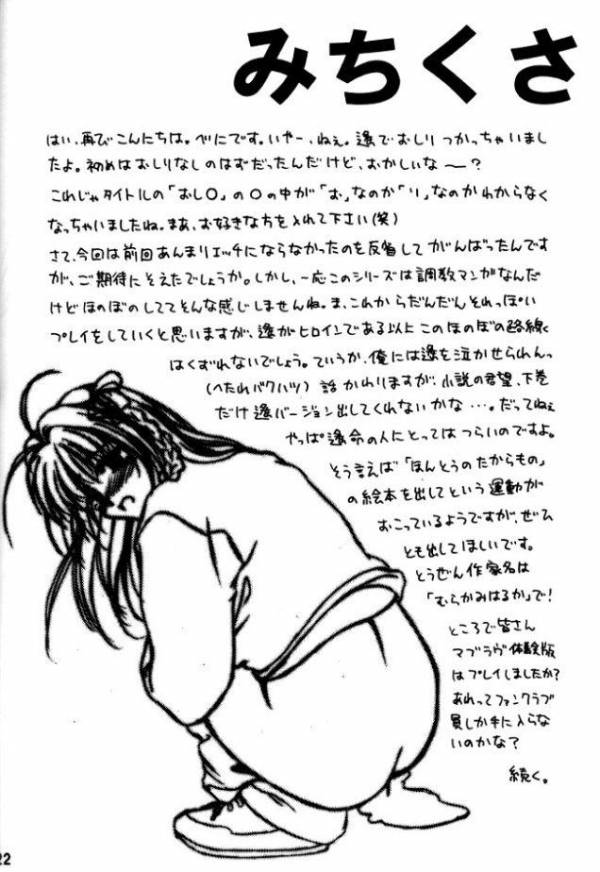 みちくさ
はい、再びこんにちは。べにです。いやー、ねぇ。遙でおしりつかっちゃいまし
たよ。初めはおしりなしのはずだったんだけど、おかしいな〜?
これじゃタイトルの「おし〇」の〇の中が「お」なのか「り」なのかわからなく
なっちゃいましたね。まあ、お好きな方を入れて下さい(笑)
さて、今回は前回あんまりエッチにならなかったのを反省してがんばったんです
が、ご期待にそえたでしょうか。しかし、一応このシリーズは調教マンガなんだ
けどほのぼのしててそんな感じしませんね。ま、これからだんだんそれっぽい
プレイをしていくと思いますが、遙がヒロインである以上このほのぼの路線く
はくずれないでしょう。ていうか、俺には遙を泣かせられんっ
(へたれバクハツ) 話かわりますが、小説の君望、下巻
だけ遙バージョン出してくれないかな…。だってねぇ
やっぱ遙命の人にとってはつらいのですよ。
そう言えば「ほんとうのたからもの」
の絵本を出してという運動が
おこっているようですが、ぜひ
とも出してほしいです。
とうぜん作家名は
「むらかみはるか」で!
ところで皆さん
マブラヴ体験版
はプレイしましたか?
あれってファンクラブ
員しか手に入らな
いのかな?
続く。
22